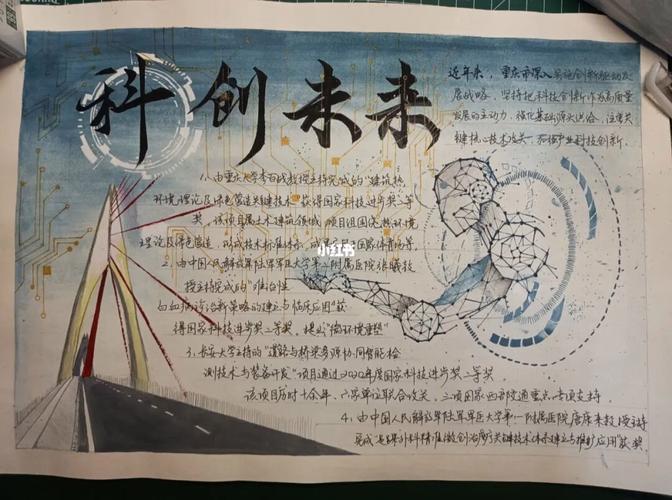 科创未来
近年来，重庆市深入实施创新驱动发
展战略，坚持把科技创新作为高质量
发展的主动力，强化基础源头供给，注重关
键核心技术攻关，加强产业科技创新。
1、由重庆大学李百战教授主持完成的"建筑热
环境理论及绿色营造关键技术"获得国家科技进步奖二等
奖，该项目属土木建筑领域，项目组围绕热环境
理论及绿色营造，以成技术标准体系，成果应用国家体育场等
2、由中国人民解放军陆军军医大学第二附属医院张曦教
授主持完成的"难治性
白血病诊治新策略的建立与临床应用"获
得国家科技进步奖二等奖，提出"微环境重塑"
3、长安大学主持的"道路与桥梁多源协同智能检
测技术与装备开发"项目通过2020年度国家科技进步奖二等奖
该项目历时十余年，六家单位联合攻关，三项国家西部交通重点专项支持
4、由中国人民解放军陆军军医大学第一附属医院唐康来教授主持
完成"足踝外科精准微创治疗关键技术体系建立与推广应用"获奖
小红书